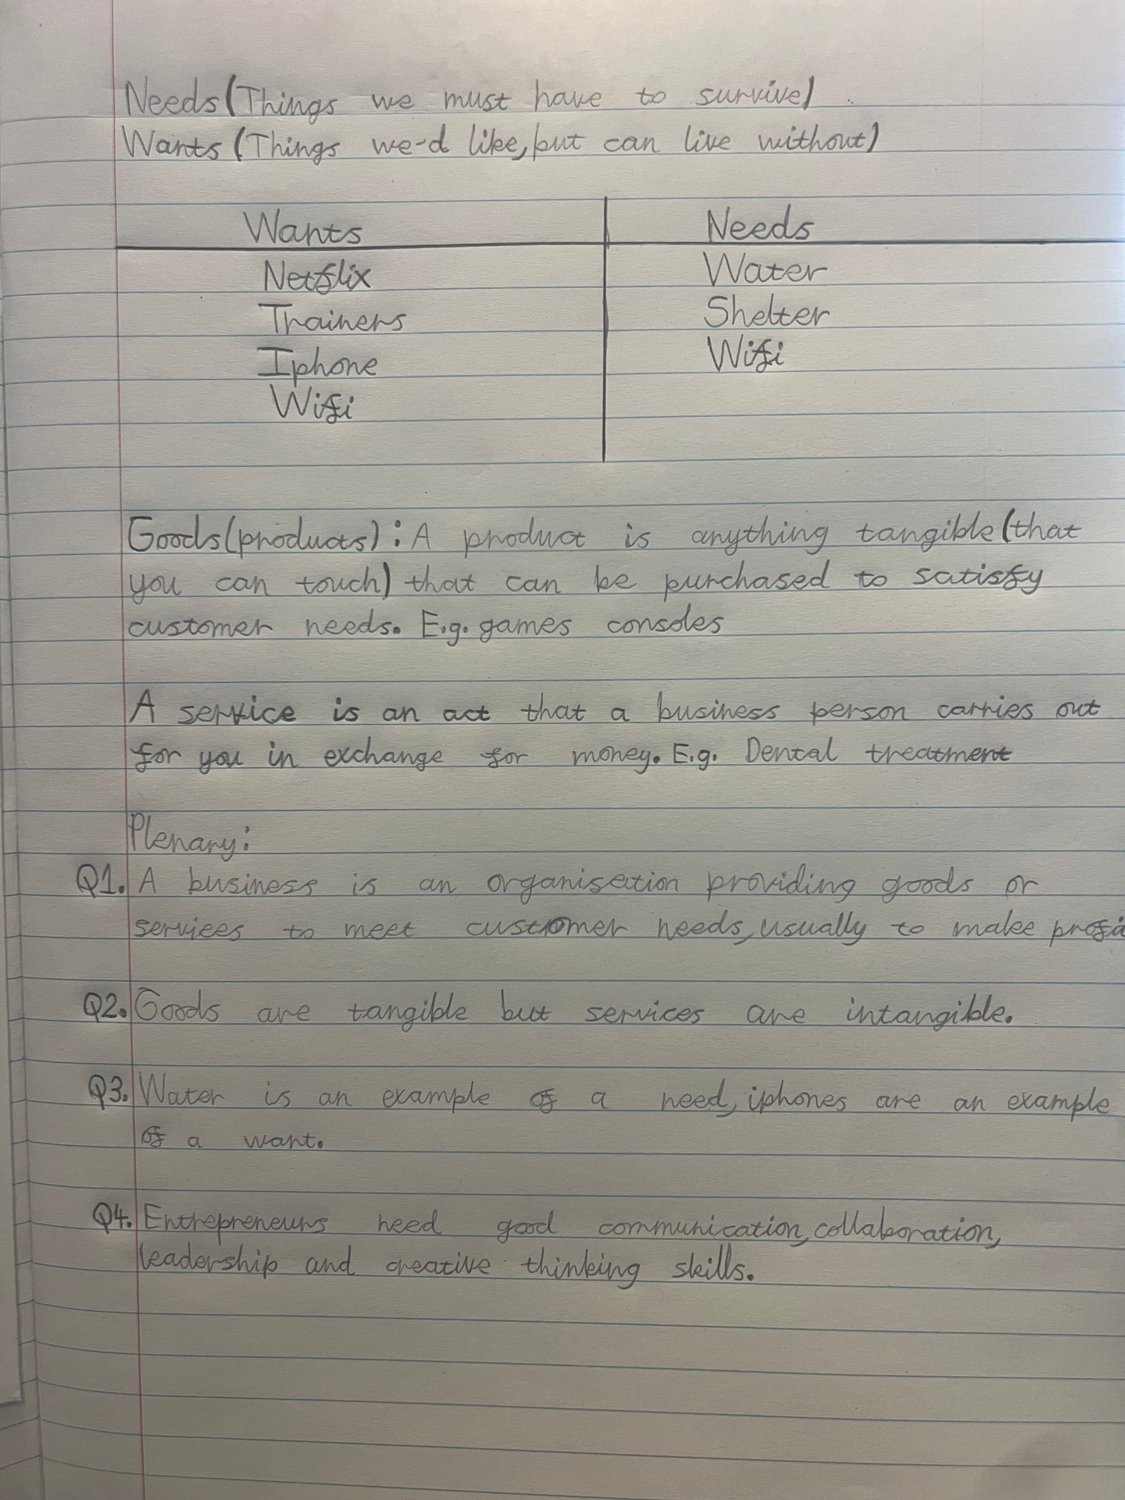 Needs(Things we must have to survive)
Wants(Things we-d like, but can live without)
Wants Needs
Netflix Water
Trainers Shelter
Iphone Wifi
Wifi
Goods(products): A product is anything tangible(that
you can touch) that can be purchased to satisfy
customer needs. E.g. games consoles
A service is an act that a business person carries out
for you in exchange for money. E.g. Dental treatment
Plenary:
Q1. A business is an organisation providing goods or
services to meet customer needs, usually to make
Q2. Goods are tangible but services are intangible.
Q3. Water is an example of a need, iphones are an example
of a want.
Q4. Entrepreneurs need good communication, collaboration,
leadership and creative thinking skills.